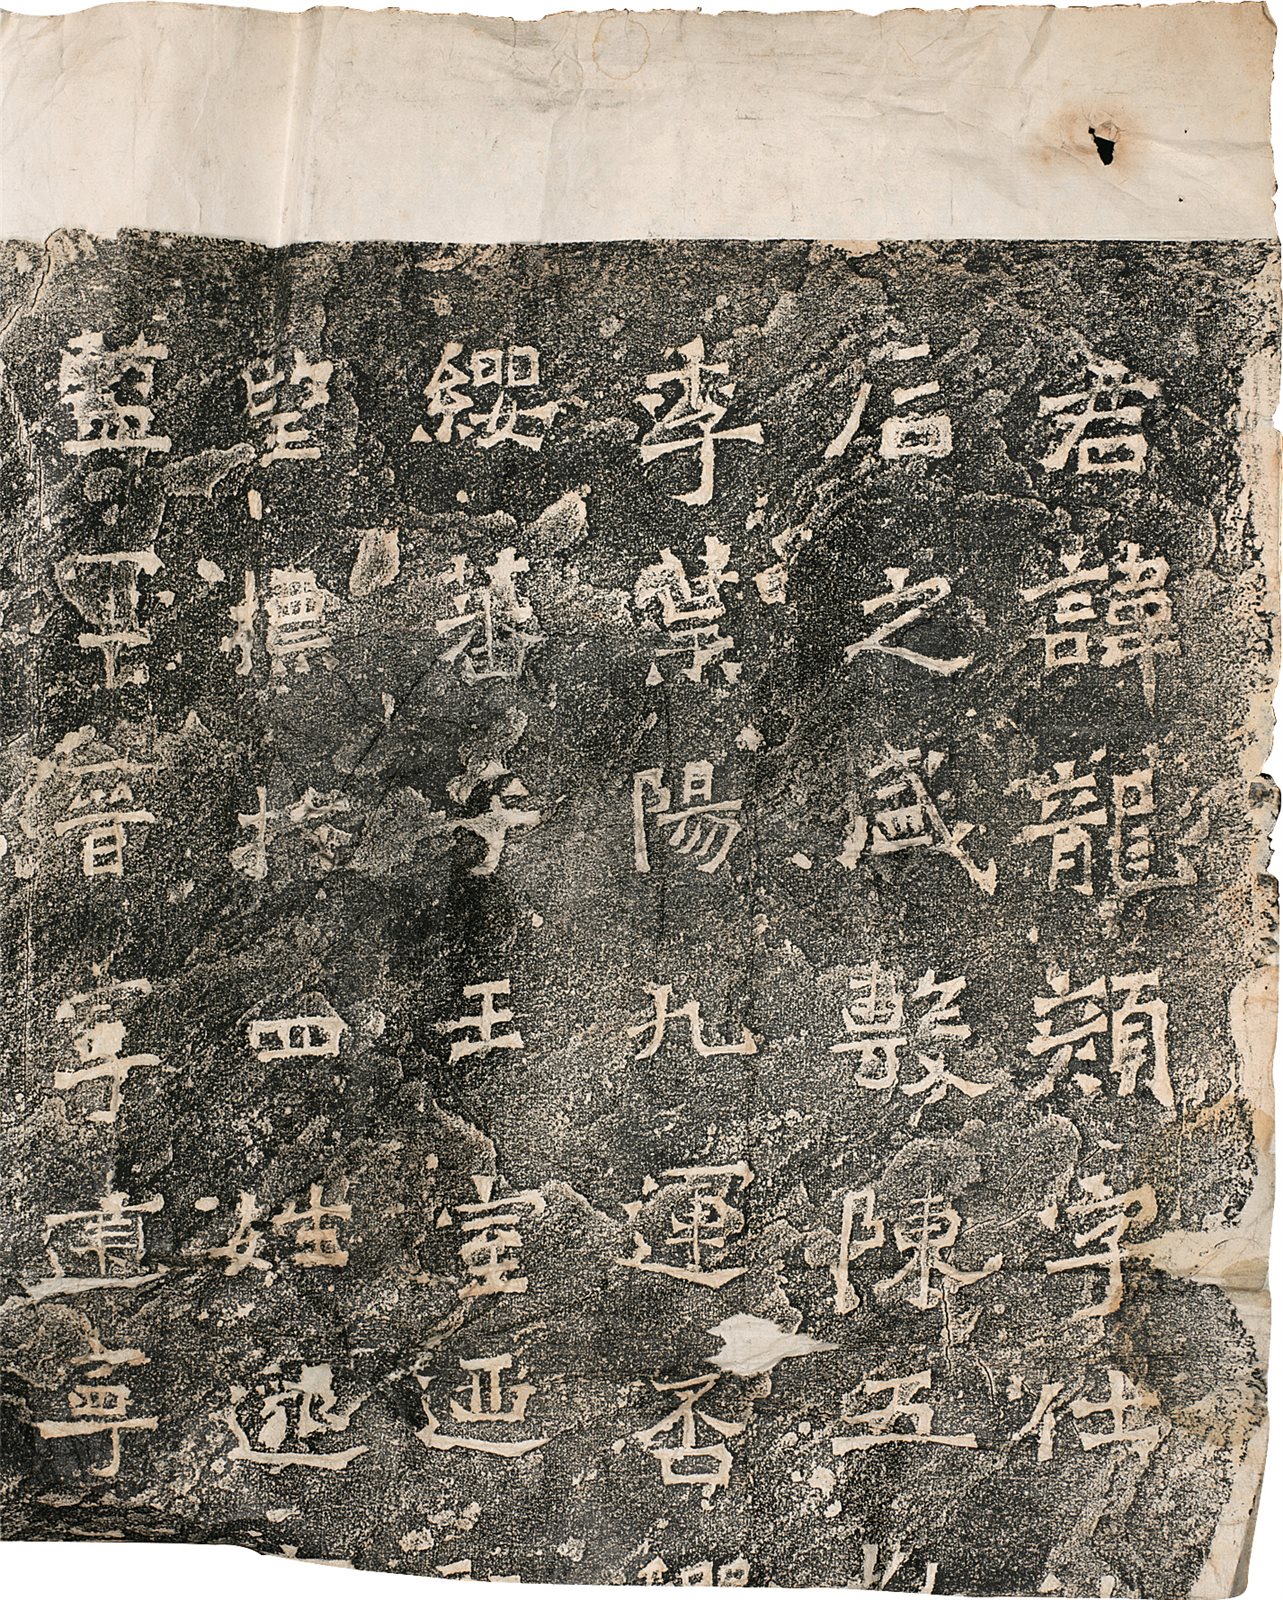 君諱龍顏字仕
后之盛敷陳五
季葉陽九運否
纓蕃乎王室迺
望標於四姓邈
監軍晉寧建寧